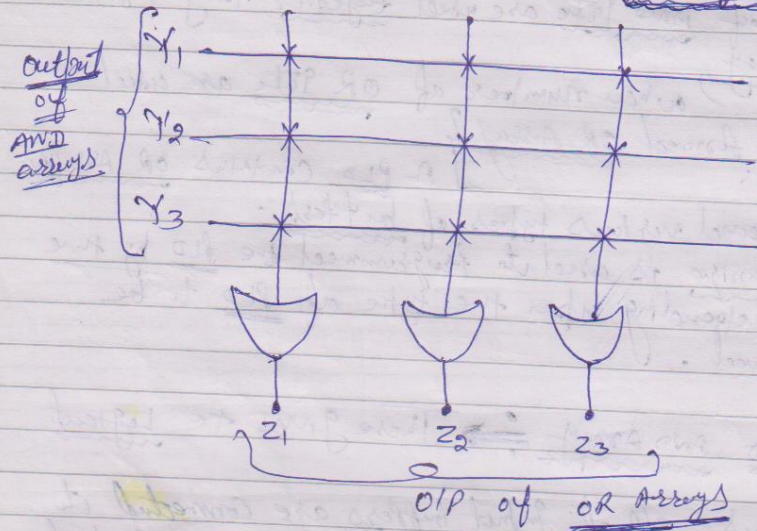 Output
of
AND
arreys
Y1
Y2
Y3
Z1 Z2 Z3
O/P of OR Arreys